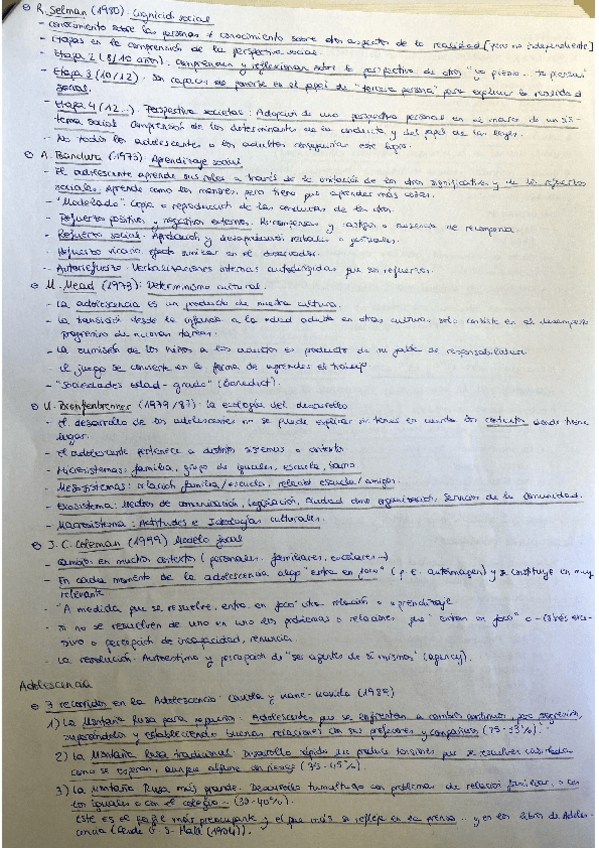 R. Selman (1980). Cognición social
- conocimiento sobre las personas ≠ conocimiento sobre otros aspectos de la realidad [pero no independiente]
- Etapas en la comprensión de la perspectiva social.
- Etapa 2 (8/10 años). Comprenden y reflexionan sobre la perspectiva de otros "yo pienso... tu piensas"
- Etapa 3 (10/12). Son capaces de ponerse en el papel de "tercera persona" para explicar la realidad
- Etapa 4 (12...). Perspectiva societas: Adopción de una perspectiva personal en el marco de un sis-
tema social. Comprensión de los determinantes de la conducta y del papel de las leyes.
- No todos los adolescentes o los adultos este logro.
A. Bandura (1973) Aprendizaje social
- El adolescente aprende sus roles a través de la imitación de los otros significativos y de los refuerzos
sociales. Aprende como los menores, pero tiene que aprender más cosas.
- "Modelado" Copia o reproducción de las conductas de los otros.
- Refuerzos positivos y negativos externos. Recompensas y castigos o ausencia de recompensa.
- Refuerzo social. Aprobación y desaprobación verbales o gestuales.
- Refuerzo vicario. efecto similar en el observador.
- Autorrefuerzo. Verbalizaciones internas autodirigidas que son refuerzos.
M. Mead (1973): Determinismo cultural.
- La adolescencia es un producto de nuestra cultura.
- La transición desde la infancia a la edad adulta en otras culturas solo consiste en el desempeño
progresivo de nuevas tareas.
- La sumisión de los niños a los adultos es producto de su falta de responsabilidades
- El juego se convierte en la forma de aprender el trabajo
- "Sociedades edad-grado" (Benedict).
U. Bronfenbrenner (1979/87): La ecología del desarrollo
- El desarrollo de los adolescentes no se puede explicar si tener en cuenta los contextos donde tiene
lugar.
- El adolescente pertenece a distintos sistemas o contextos
- Microsistemas: familia, grupo de iguales, escuela, barrio
- Mesosistemas: relación familia/escuela, relación escuela/amigos.
- Exosistema: Medios de comunicación, legislación, ciudad como organización, servicios de la comunidad.
- Macrosistema: Actitudes e Ideologías culturales.
J. C. Coleman (1999) Modelo focal
- Cambios en muchos contextos (personales. familiares, escolares...)
- En cada momento de la adolescencia algo "entra en foco" (p.e. autoimagen) y se constituye en muy
relevante
- "A medida que se resuelve, entra en foco" otra relación o aprendizaje.
- Si no se resuelven de uno en uno los problemas o relaciones que "entran en foco" → estrés exce-
sivo o percepción de incapacidad, renuncia.
- La resolución. Autoestima y percepción de "ser agentes de sí mismos" (agency).
Adolescencia
3 recorridos en la Adolescencia. (1985)
1) La Montaña Rusa para pequeños: Adolescentes que se enfrentan a cambios continuos,
superándolos y estableciendo buenas relaciones con sus profesores y compañeros
2) La Montaña Rusa tradicional: Desarrollo rápido que produce tensiones que se resuelven
como se esperan, aunque algunos sin riesgo
3) La Montaña Rusa más grande. Desarrollo tumultuoso con problemas de relación familiar, o con
los iguales o con el colegio - (30-40%).
Este es el perfil más preocupante y el que más se refleja en la prensa... y en los libros de Adoles-
cencia (desde G. S. Hall (1904)).